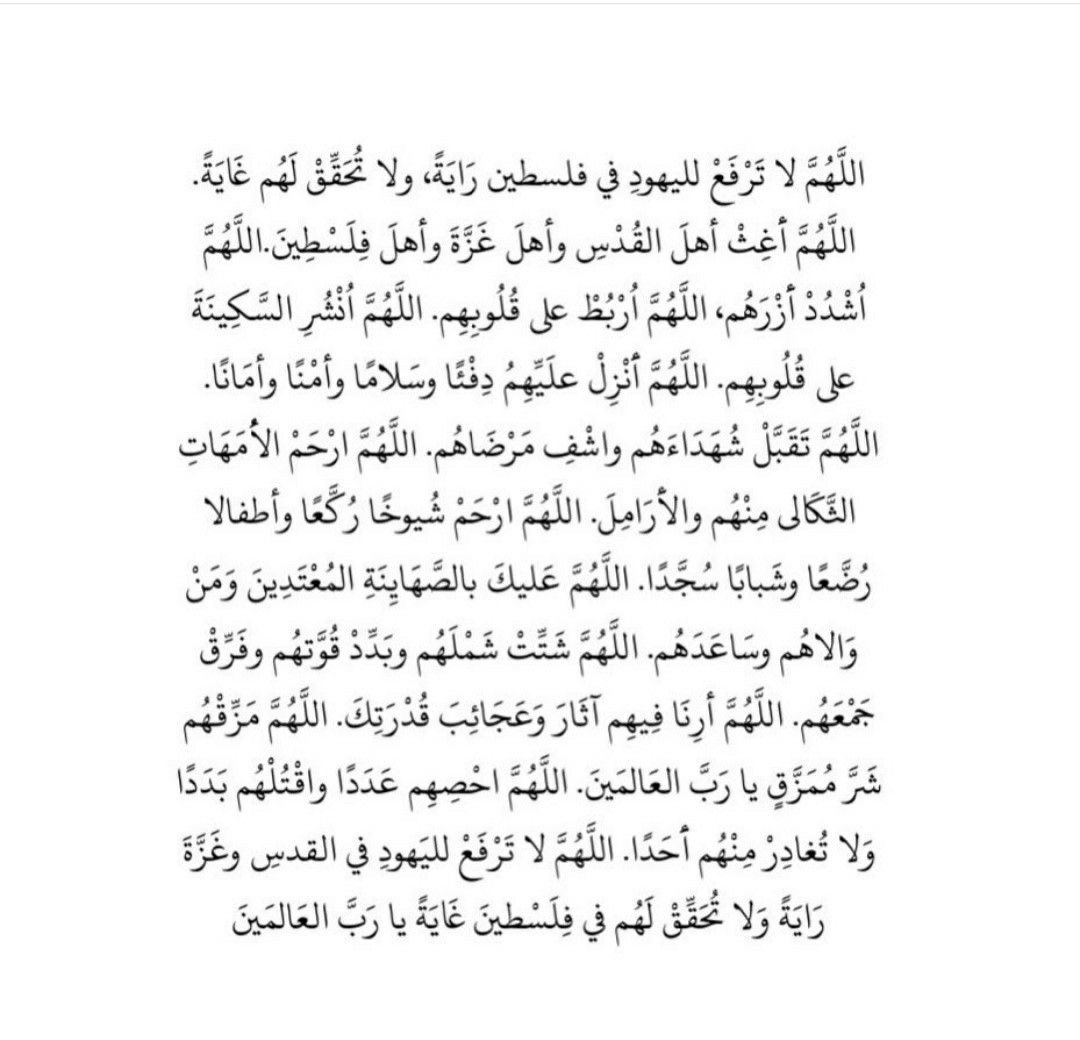 اللَّهُمَّ لا تَرْفَعْ لليهودِ في فلسطين رَايَةً، ولا تُحَقِّقْ لَهُم غَايَةً.
اللَّهُمَّ أَغِثْ أهلَ القُدْسِ وأهلَ غَزَّةَ وأهلَ فِلَسْطِينَ.اللَّهُمَّ
اُشْدُدْ أَزْرَهُم، اللَّهُمَّ اُرْبُطْ على قُلُوبِهِم. اللَّهُمَّ اُنْشُرِ السَّكِينَةَ
على قُلُوبِهِم. اللَّهُمَّ أَنْزِلْ علَيِّهِمُ دِفْئًا وسَلامًا وأمْنًا وأمَانًا.
اللَّهُمَّ تَقَبَّلْ شُهَدَاءَهُم واشْفِ مَرْضَاهُم. اللَّهُمَّ ارْحَمْ الأُمَهَاتِ
الثَّكَالى مِنْهُم والأرَامِلَ. اللَّهُمَّ ارْحَمْ شُيوخًا رُكَّعًا وأطفالا
رُضَّعًا وشَبابًا سُجَّدًا. اللَّهُمَّ عَليكَ بالصَّهَايِنَةِ المُعْتَدِينَ وَمَنْ
وَالاهُم وسَاعَدَهُم. اللَّهُمَّ شَتِّتْ شَمْلَهُم وبَدِّدْ قُوَّتهُم وفَرِّقْ
جَمْعَهُم. اللَّهُمَّ أرِنَا فِيهِم آثَارَ وَعَجَائِبَ قُدْرَتِكَ. اللَّهُمَّ مَزِّقْهُم
شَرَّ مُمَزَّقٍ يا رَبَّ العَالمَينَ. اللَّهُمَّ احْصِهِم عَدَدًا واقْتُلْهُم بَدَدًا
وَلا تُغادِرْ مِنْهُم أَحَدًا. اللَّهُمَّ لا تَرْفَعْ لليَهودِ في القدسِ وغَزَّةَ
رَايَةً وَلا تُحَقِّقْ لَهُم في فِلَسْطينَ غَايَةً يا رَبَّ العَالمَينَ